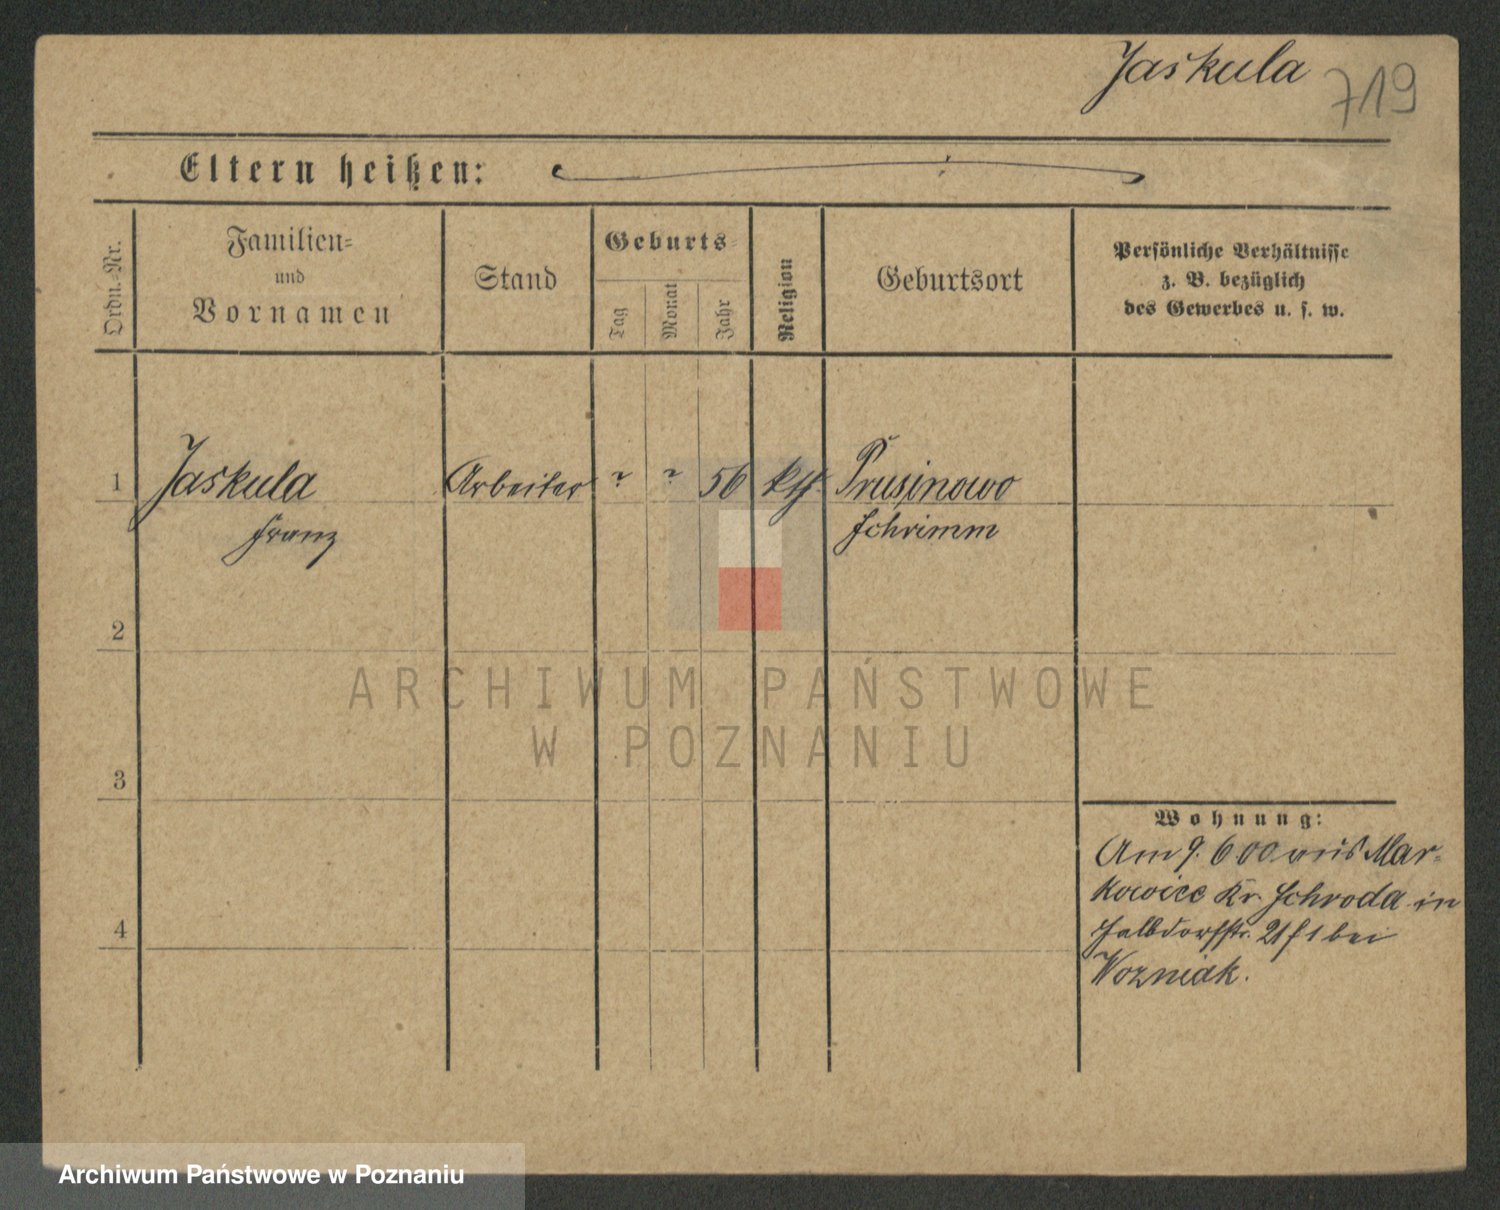 Jaskula 719
Eltern heißen:
Ordn.-Nr.
Familien-
und
Vornamen
Stand
Geburts-
Tag
Monat
Jahr
Religion
Geburtsort
Persönliche Verhältnisse
z. B. bezüglich
des Gewerbes u. s. w.
1 Jaskula Arbeiter ? ? 56 kth Prusinowo
Franz Schrimm
2
3
4
Wohnung:
Am 9. 6 00 aus Mar-
kowice Kr. Schroda in
Halbdorfstr. 21 f 1 bei
Wozniak.
ARCHIWUM PAŃSTWOWE
W POZNANIU
Archiwum Państwowe w Poznaniu